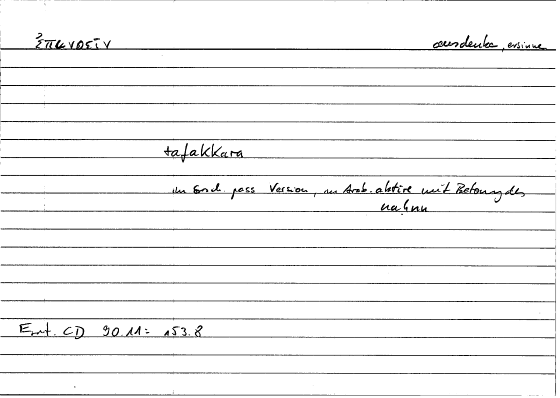 ἐπινοεῖν ausdenken, ersinnen
tafakkara
im Griech. pass Version, im Arab. aktive mit Betonung des
naḥnu
Ent. CD 90.11 = 153.8